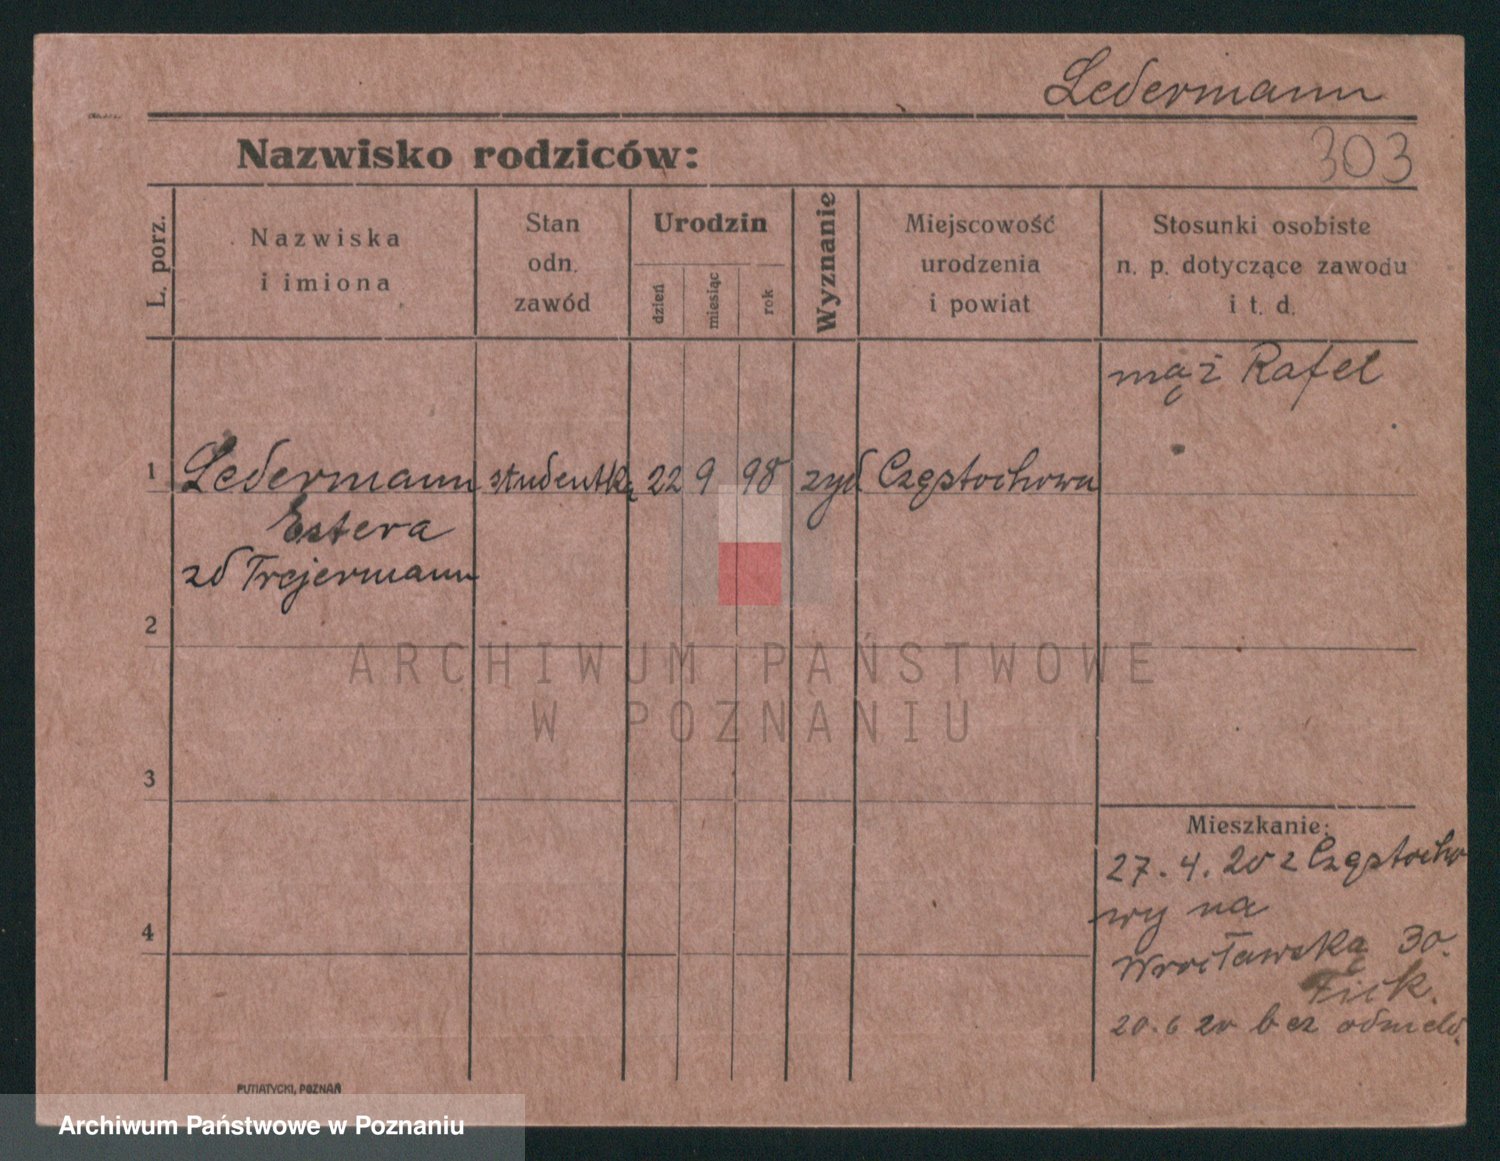 Ledermann
303
Nazwisko rodziców:
L. porz.
Nazwiska
i imiona
Stan
odn.
zawód
Urodzin
dzień
miesiąc
rok
Wyznanie
Miejscowość
urodzenia
i powiat
Stosunki osobiste
n. p. dotyczące zawodu
i t. d.
mąż Rafel
1 Ledermann studentka 22 9 98 żyd Częstochowa
Estera
zd Trejermann
2
3
4
Mieszkanie:
27.4.20 z Częstocho
wy na
Wrocławska 30.
Fick.
20.6 20 bez odmeld.
PUTIATYCKI, POZNAŃ
ARCHIWUM PAŃSTWOWE
W POZNANIU
Archiwum Państwowe w Poznaniu